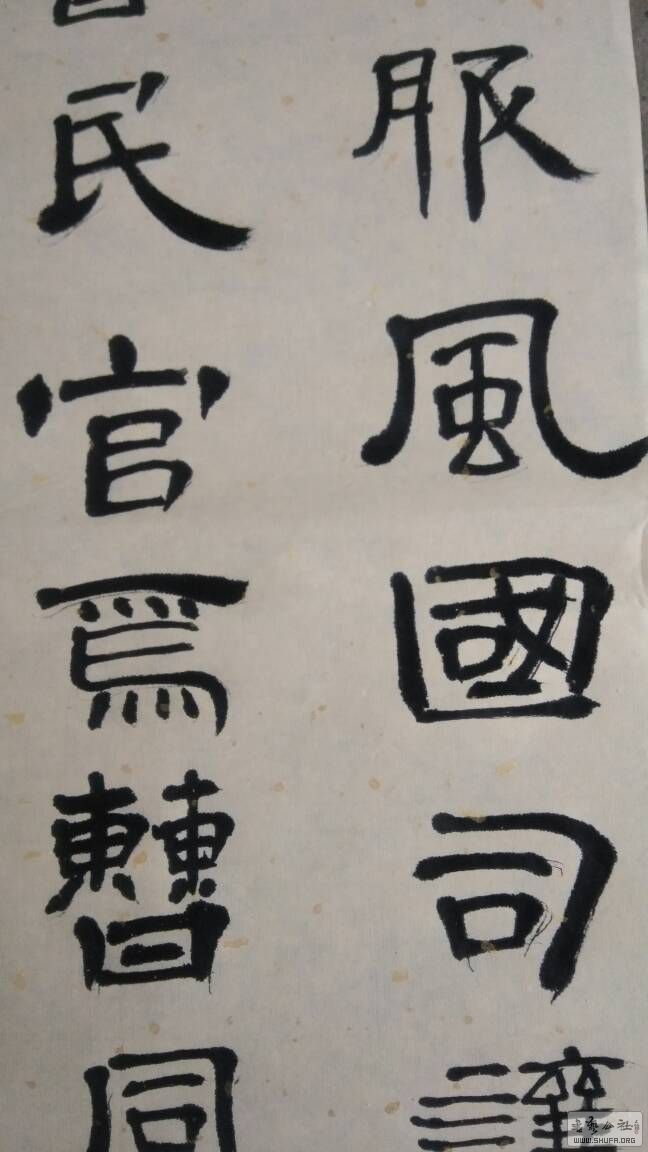 服風國司
民官爲曹同
书艺公社
WWW.SHUFA.ORG